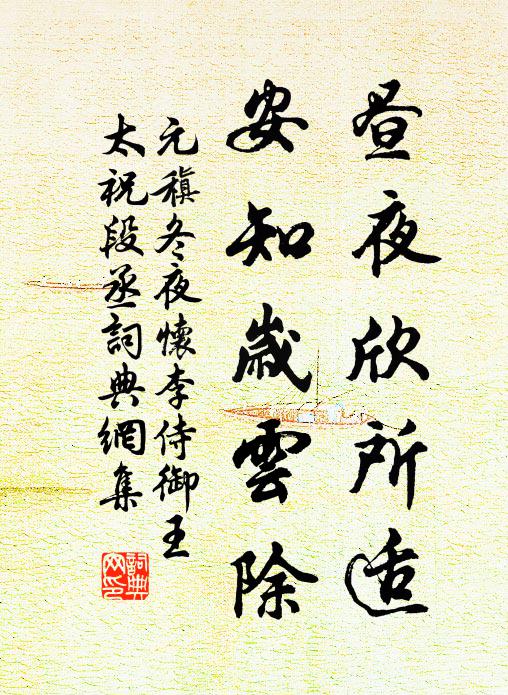 昼夜欣所适
安知歲雲除
元稹冬夜懷李侍御王
太祝段丞詞典網集
詞典网印